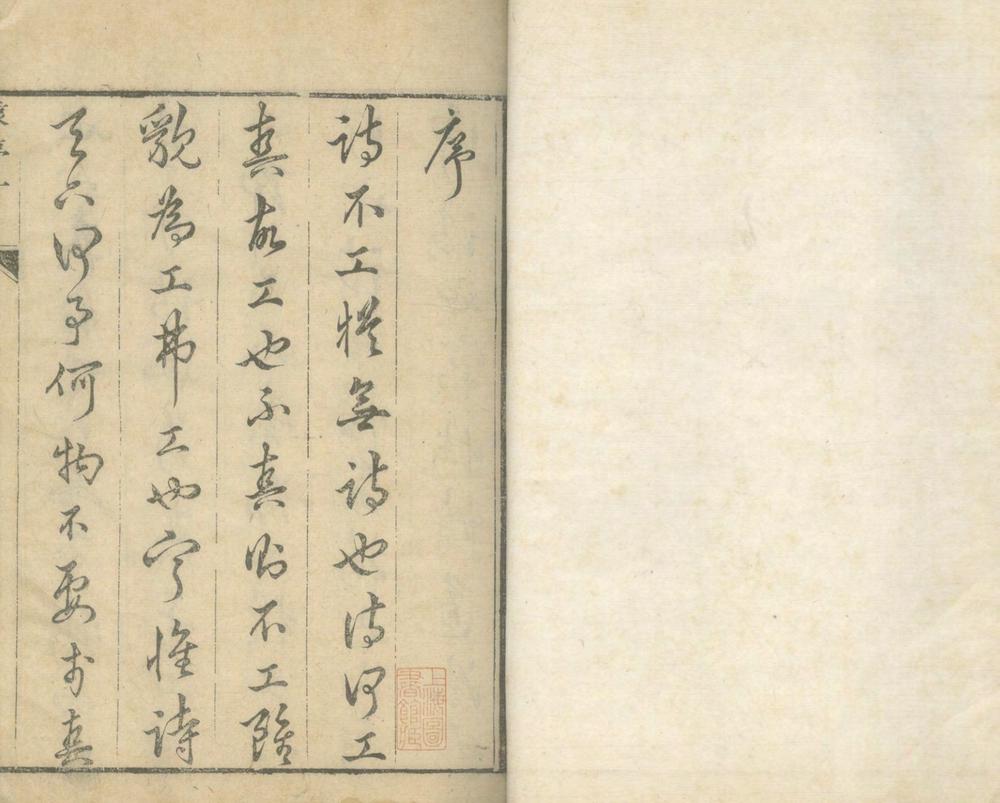 序
詩不工猶無詩也詩何工
真故工也不真則不工雖
貌為工弗工也寧惟詩
天下何事何物不要於真
上海圖
書館藏